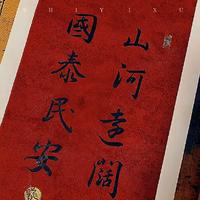 SHIYIXU
山河遠闊
國泰民安